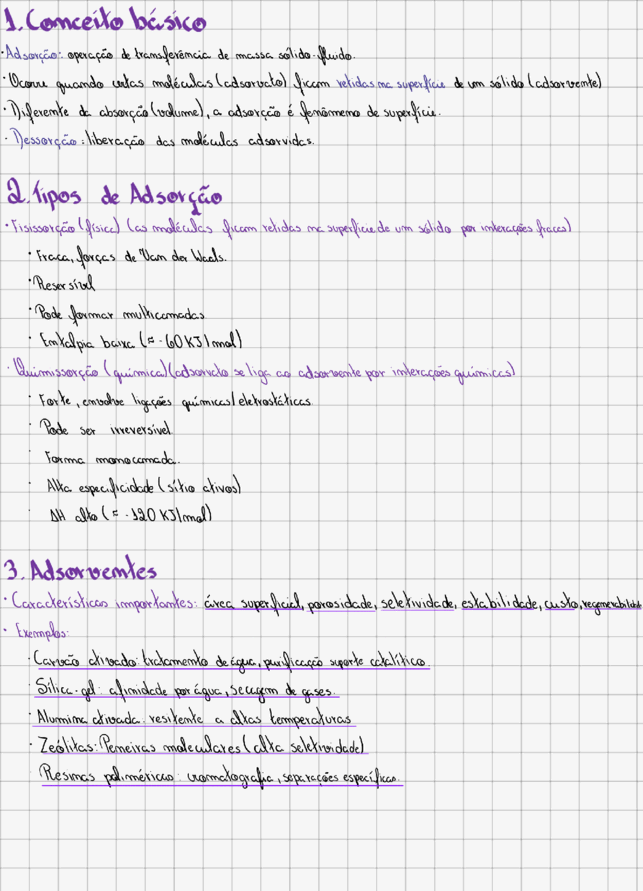 1. Conceito básico
· Adsorção: operação de transferência de massa sólido-fluido.
· Ocorre quando certas moléculas (adsorvato) ficam retidas na superfície de um sólido (adsorvente)
· Diferente da absorção (volume), a adsorção é fenômeno de superfície.
· Dessorção: liberação das moléculas adsorvidas.
2. Tipos de Adsorção
· Fisissorção (física) (as moléculas ficam retidas na superfície de um sólido por interações fracas)
· Fraca, forças de Van der Waals.
· Resersível
· Pode formar multicamadas
· Entalpia baixa (≈ -60 KJ/mol)
· Quimissorção (química) (adsorvato se liga ao adsorvente por interações químicas)
· Forte, envolve ligações químicas/eletrostáticas
· Pode ser irreversível
· Forma monocamada.
· Alta especificidade (sítio ativos)
· ΔH alto (≈ -120 KJ/mol)
3. Adsorventes
· Características importantes: área superficial, porosidade, seletividade, estabilidade, custo, regenerabilidade
· Exemplos:
· Carvão ativado: tratamento de água, purificação suporte catalítico
· Sílica-gel: afinidade por água, secagem de gases.
· Alumina ativada: resitente a altas temperaturas
· Zeólitas: Peneiras moleculares (alta seletividade)
· Resinas poliméricas: cromatografia, separações específicas.